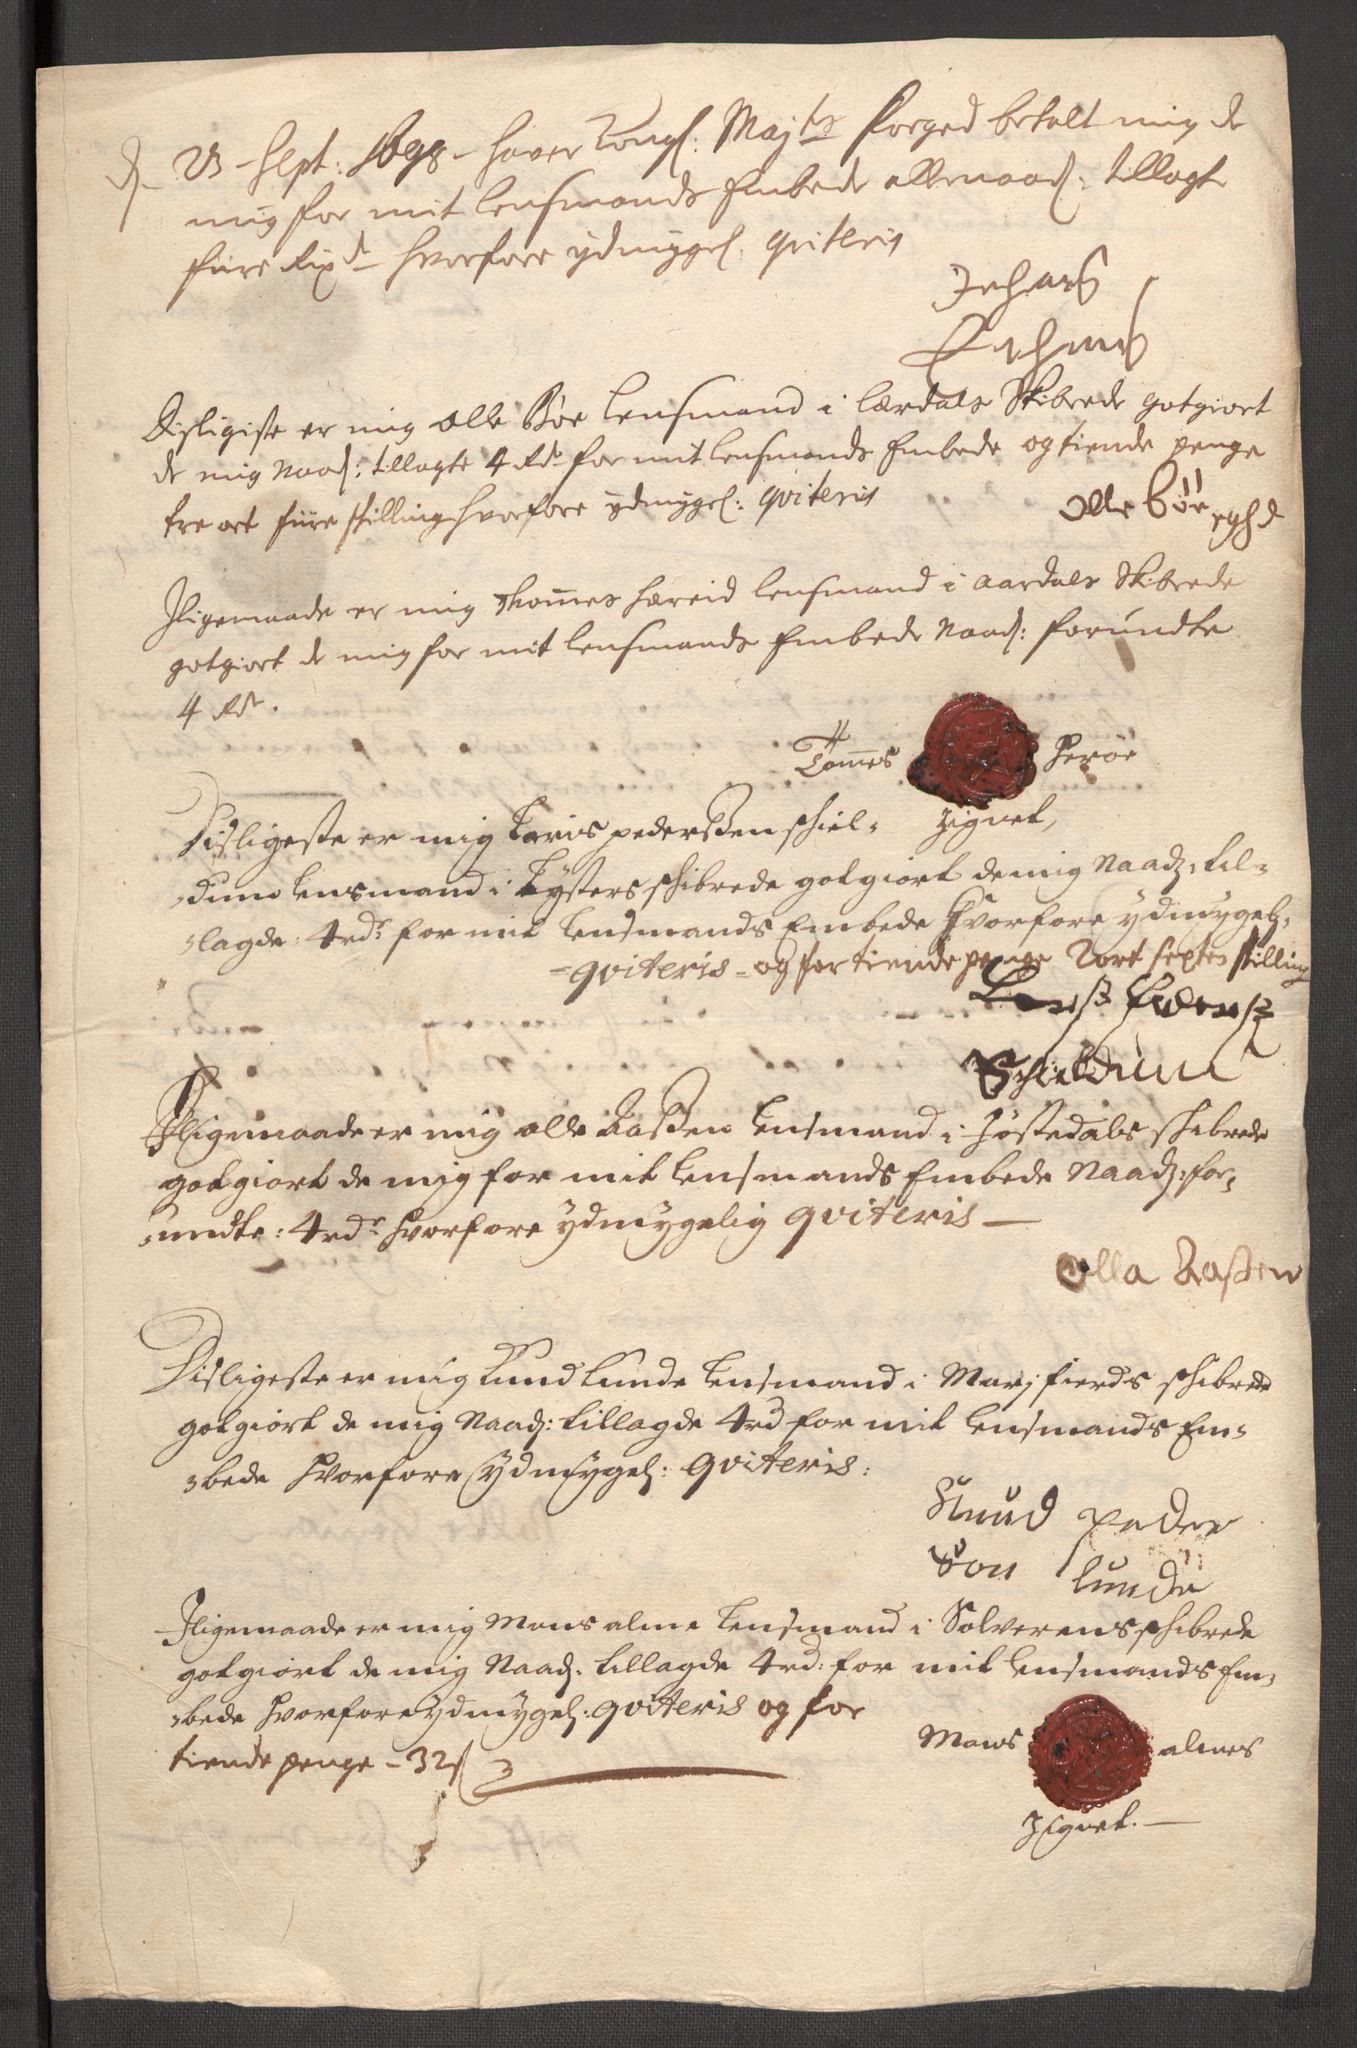 d. 23 Sept: 1698 - haver Kongl: Maytz foged betalt mig de
mig for mit Lensmands Embede allernaad: tillagte
fiire Rixd hvorfore ydmygel: qviteris
Disligiste er mig Olle Bøe Lensmand i Lærdals Skibrede gotgiort
de mig Naad: tillagte 4 Rdr for mit Lensmands Embede og tiende penge
tre ort fiire skilling hvorfore ydmygel: qviteris
Olle Bøe
Iligemaade er mig Thommes Hæreid Lensmand i Aardals Skibrede
gotgiort de mig for mit Lensmands Embede Naad: forundte
4 Rdr.
Tommes Herøe
Zignet,
Disligeste er mig Laris pederßen schiel-
-dum Lensmand i Lysters schibrede gotgiort de mig Naad: til-
-lagde: 4 rdr for mit Lensmands Embede hvorfore ydmygel:
- qviteris - og for tiende penge 2 ort sexten skilling
Larß Pederß
Schieldum
Iligemaade er mig olle Aaßen Lensmand i Jostedals schibrede
gotgiort de mig for mit Lensmands Embede Naad: for-
-undte: 4 rdr hvorfore ydmygelig qviteris
Olla Aaßen
Disligeste er mig Knud Lunde Lensmand i Marifierds schibrede
gotgiort de mig Naad: tillagde 4 rd for mit Lensmands Em-
-bede hvorfore ydmygel: qviteris:
Knud peder
Son Lunde
Iligemaade er mig Mons alme Lensmand i Solverens schibrede
gotgiort de mig Naad: tillagde 4 rd: for mit Lensmands Em-
-bede hvorfore ydmygel: qviteris og for
tiende penge - 32 s
Mons almes
Zignet.